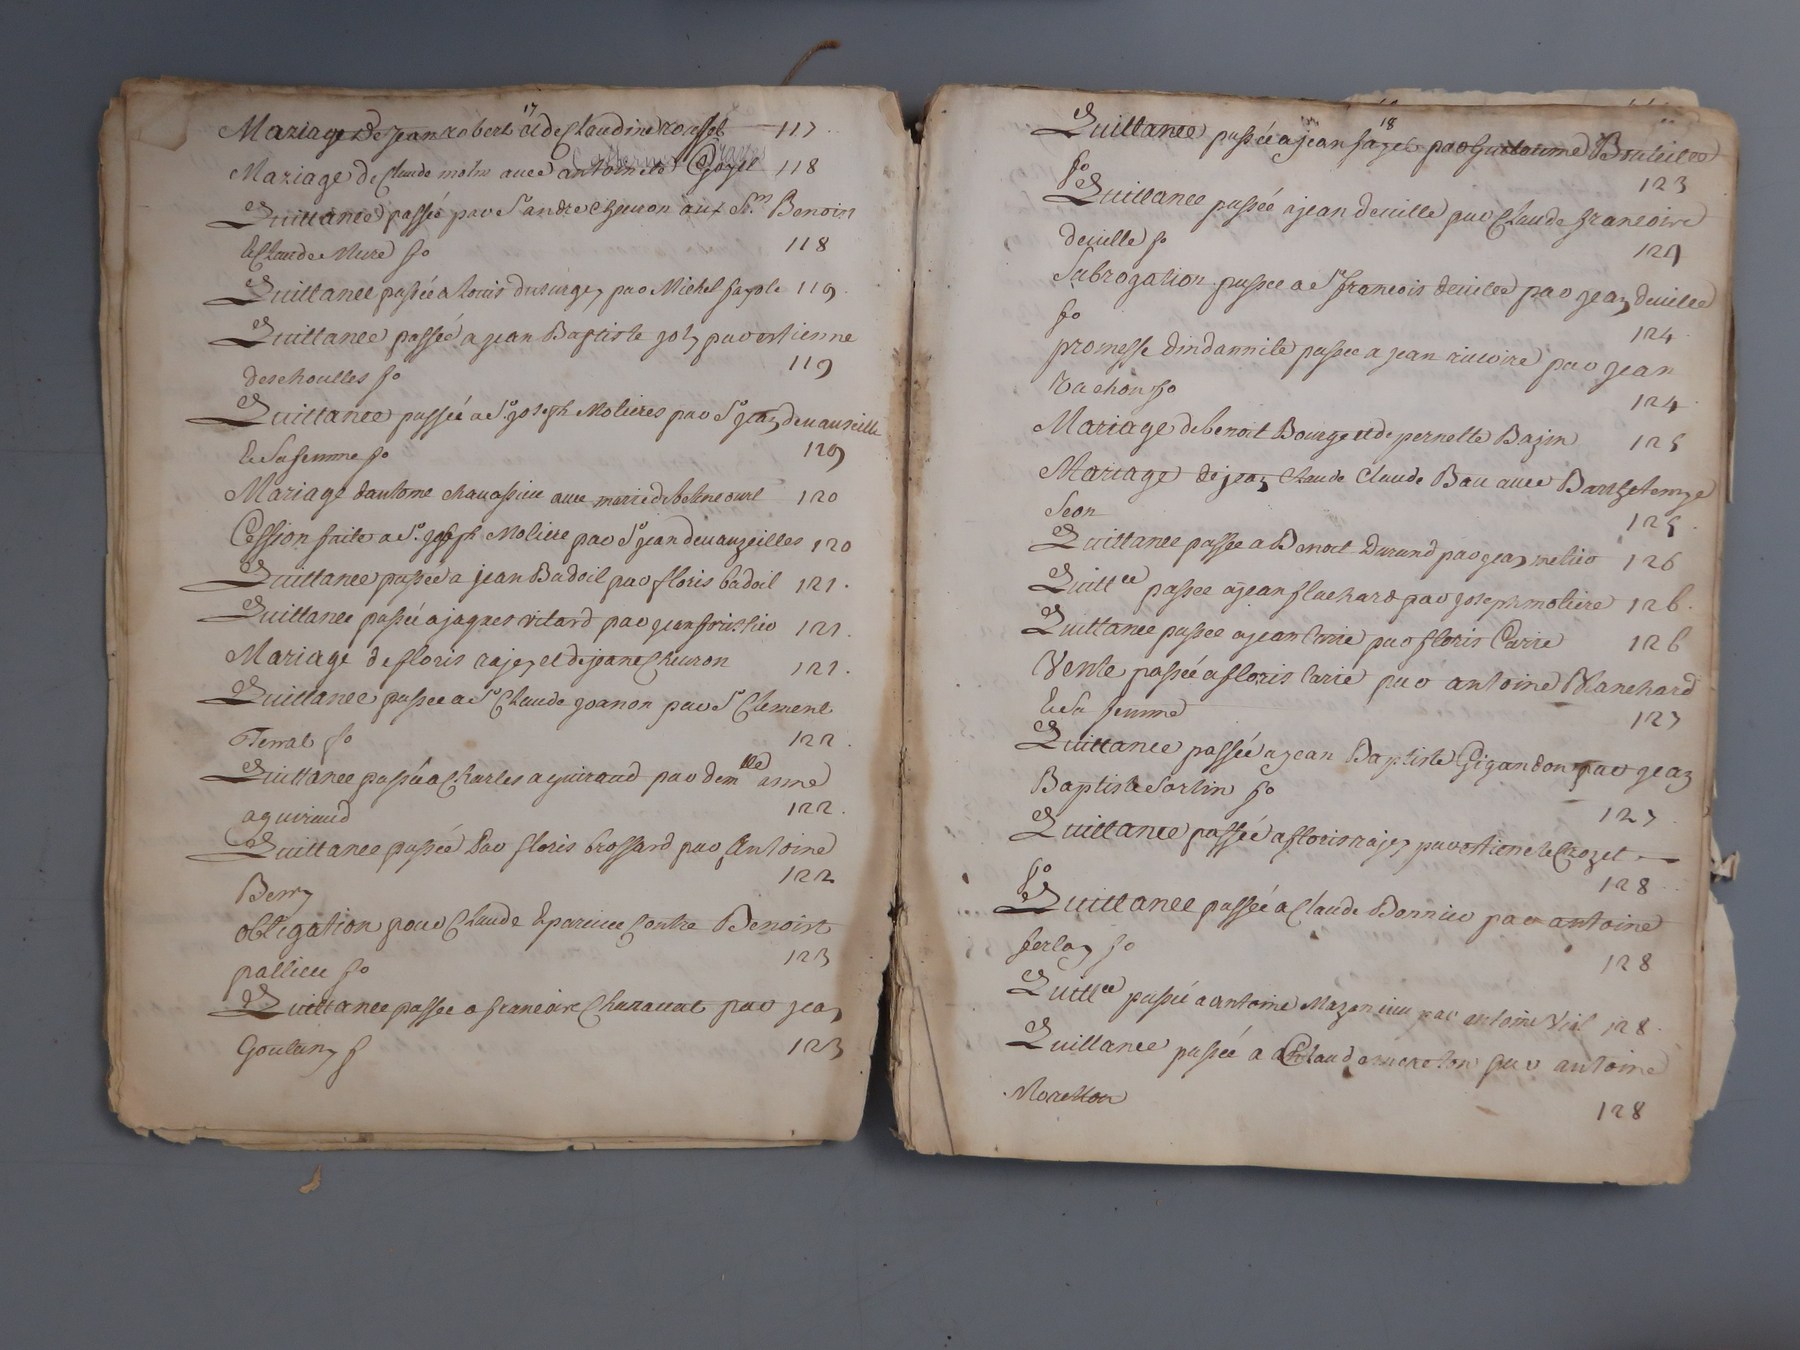 17
Mariage De jean Robert et de Claudine rousset 117
Mariage De Claude molin avec antoinete Gozel 118
Quittance passée par Sr andre cheuron aux Srs Benoit
& Claude Mure fo 118
Quittance passée a Louis dusurgey par Michel fayole 119
Quittance passée a jean Baptiste goly par estienne
deschoulles fo 119
Quittance passée a Sr joseph Molieres par Sr jean devauzeille
& Sa femme fo 119
Mariage dantoine chauassieu avec marie de belinecourt 120
Cession faite a Sr joseph Moliere par Sr jean devauzeilles 120
Quittance passée a jean Badoil par floris badoil 121.
Quittance passée a jaques vitard par jean 121.
Mariage de floris rajey et de jeane Cheuron 121.
Quittance passée a Sr Claude goanon par Sr Clement
Terrat fo 122.
Quittance passée a Charles aguiraud par demlle anne
aguiraud 122.
Quittance passée Par floris brossard par Antoine
Berry 122
obligation pour Claude Eparcieu Contre Benoist
pallieu fo 123
Quittance passée a francoise Chavanat par jean
Goutany f 123
18
Quittance passée a jean fayet par Guilaume Bouteiller
fo 123
Quittance passée a jean deville par Claude francoise
deville fo 124
Subrogation passée a Sr francois deville par jean deville
fo 124
promesse dindannite passée a jean rivoire par jean
Vachon fo 124
Mariage de benoit Bourge et de pernette Bajin 125
Mariage de jean Claude Claude Bau avec
Seon 125
Quittance passée a Benoit Durand par jean melier 126
Quittce passée a jean flachard par joseph moliere 126.
Quittance passée a jean Carie par floris Carie 126
Vente passée a floris Carie par antoine Blanchard
& Sa femme 127
Quittance passée a jean Baptiste Gigandon par jean
Baptiste Sorlin fo 127.
Quittance passée a floris rajey par estiene le Crozet
fo 128
Quittance passée a Claude Bonnier par antoine
ferlay fo 128
Quittce passée a antoine Mazenieu par antoine Vial 128.
Quittance passée a Claude moreton par antoine
Moretton 128